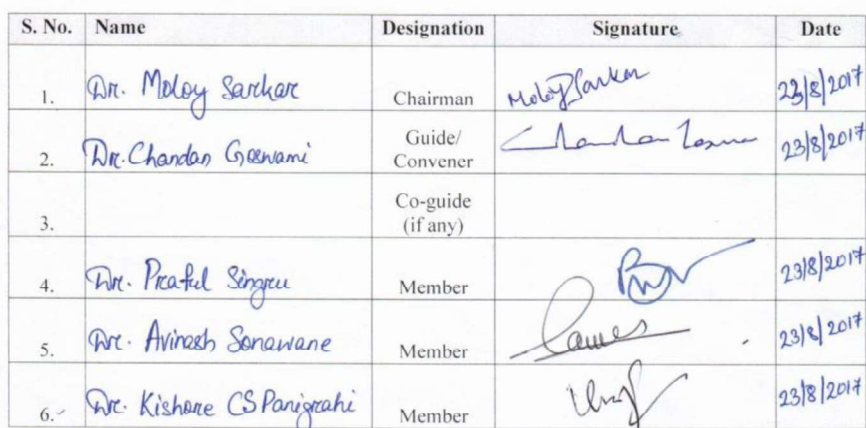 S. No. Name Designation Signature Date
1. Dr. Moloy Sarkar Chairman Moloy Sarkar 23/8/2017
2. Dr. Chandan Goswami Guide/ Convener 23/8/2017
3. Co-guide (if any)
4. Dr. Praful Singru Member 23/8/2017
5. Dr. Avinash Sonawane Member 23/8/2017
6. Dr. Kishore CS Panigrahi Member 23/8/2017